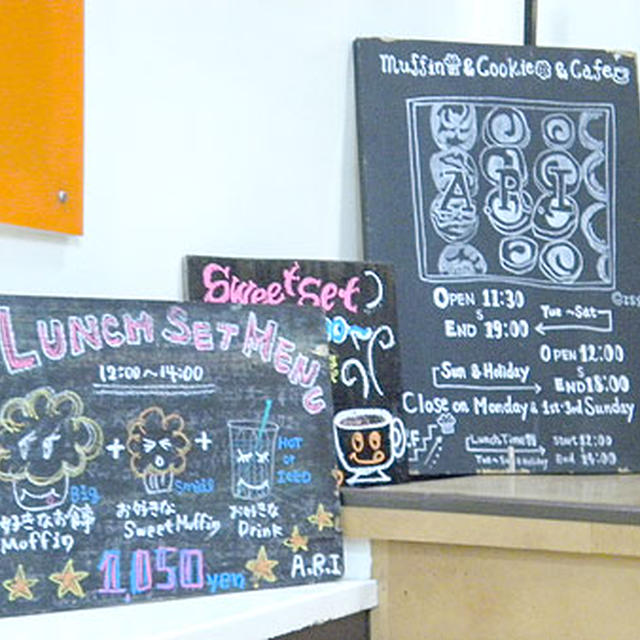 Muffin & Cookie & Cafe
A R I
OPEN 11:30
S
END 19:00
Tue ~Sat
OPEN 12:00
S
END 18:00
Sun & Holiday
Close on Monday & 1st·3rd Sunday
Lunch Time
Start 12:00
End 14:00
Sweet Set
LUNCH SET MENU
12:00～14:00
+ +
Big
Small
HOT
or
ICED
好きなお食事
Moffin
お好きな
Sweet Muffin
お好きな
Drink
1,050 yen
A.R.I